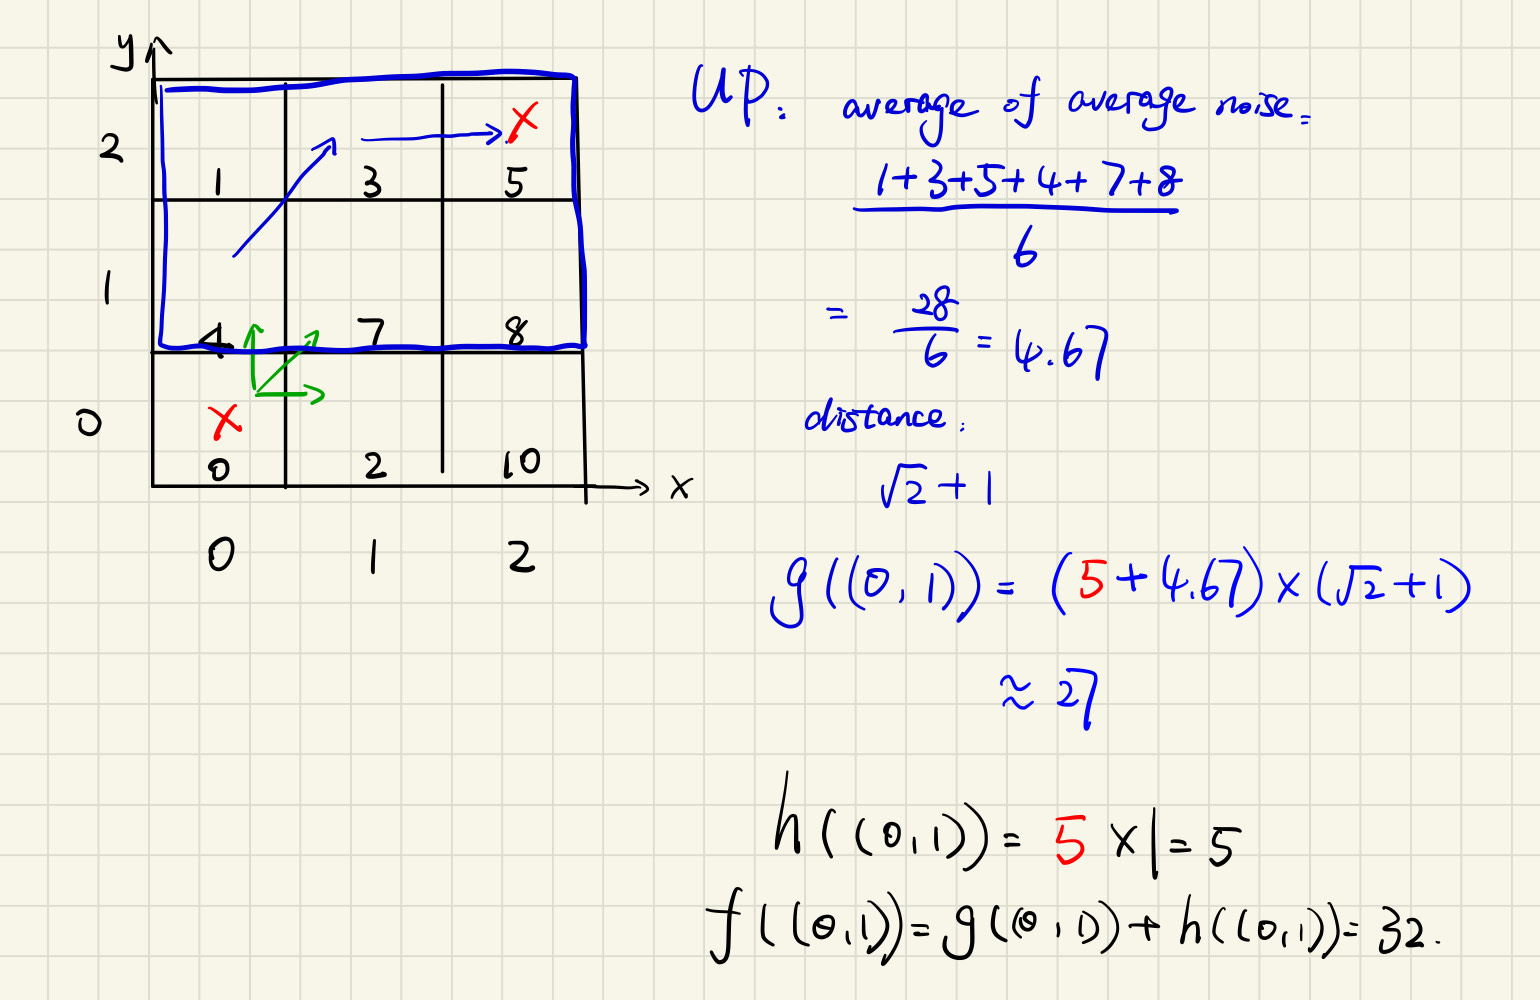 y
2
1 3 5
X
1
4 7 8
0
X
0 2 10
x
0 1 2
UP: average of average noise:
1+3+5+4+7+8
6
= 28/6 = 4.67
distance:
√2 + 1
g((0,1)) = (5+4.67)×(√2+1)
≈ 27
h((0,1)) = 5 × 1 = 5
f((0,1)) = g((0,1)) + h((0,1)) = 32.